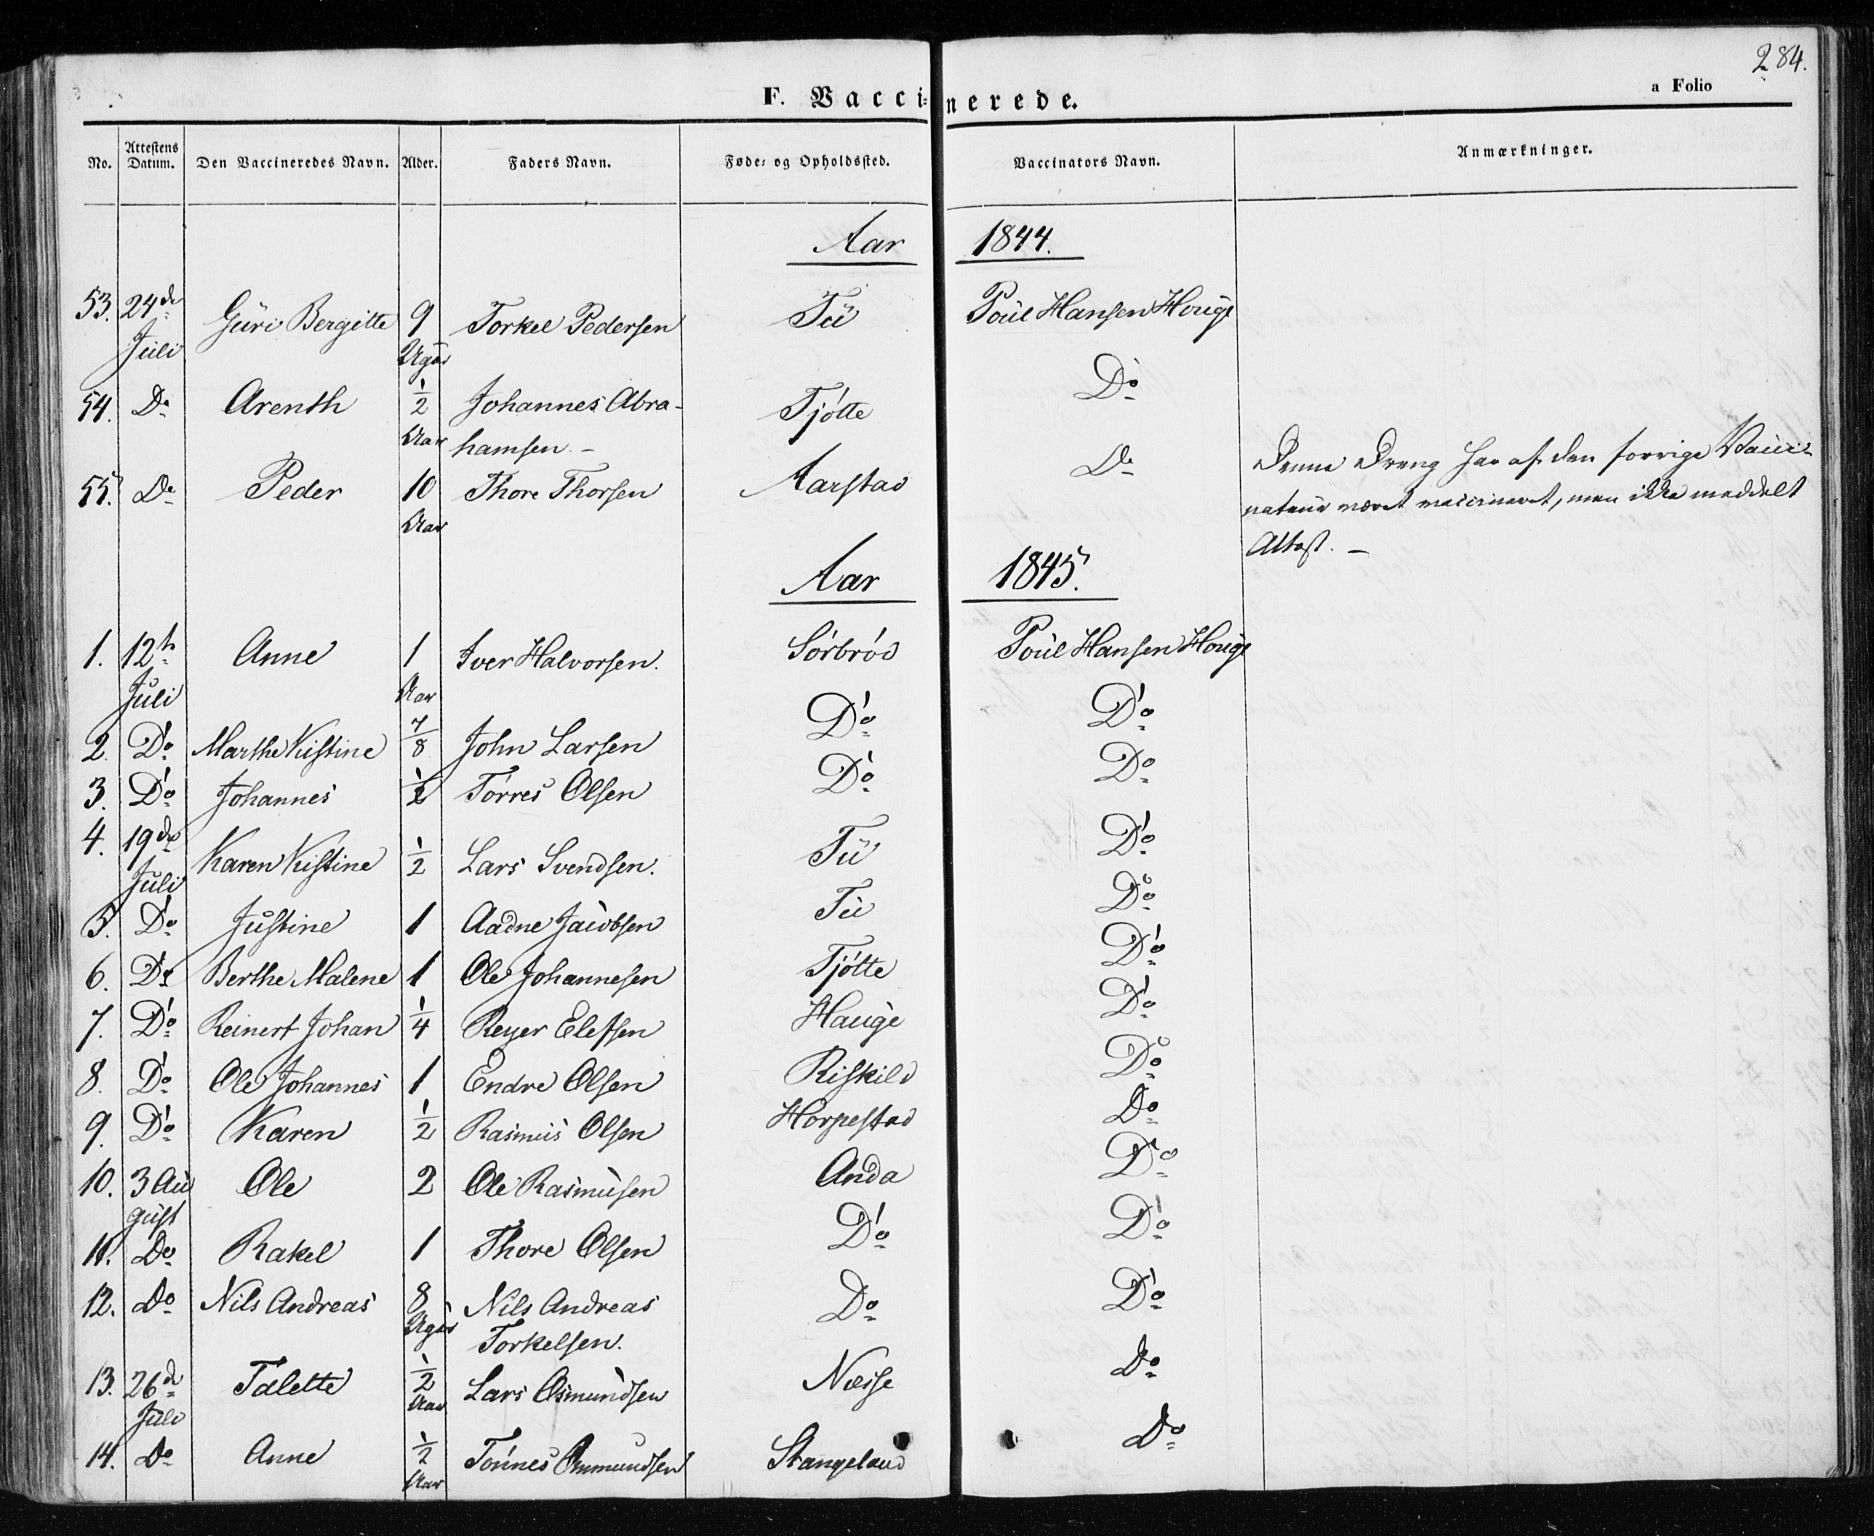 284.
F. Vaccinerede.
a Folio
No. Attestens Datum. Den Vaccineredes Navn. Alder. Faders Navn. Føde- og Opholdssted. Vaccinators Navn. Anmærkninger.
Aar 1844.
53. 24de Juli Guri Bergitte 9 Uger Torkel Pedersen Tu Poul Hansen Houge
54. Do Arenth 1/2 Aar Johannes Abra-
hamsen. – Tjøtte Do
55. Do Peder 10 Aar Thore Thorsen Aarstad Do Denne Dreng har af den forrige Vacci-
nateur været vaccineret, men ikke meddelt
Attest. –
Aar 1845.
1. 12te Juli Anne 1 Aar Iver Halvorsen. Sørbrød Poul Hansen Houge
2. Do Marthe Kistine 7/8 John Larsen Do Do
3. Do Johannes 1/2 Tørres Olsen Do Do
4. 19de Juli Karen Kistine 1/2 Lars Svendsen. Tu Do
5. Do Justine 1 Aadne Jacobsen Tu Do
6. Do Berthe Malene 1 Ole Johannesen Tjøtte Do
7. Do Reinert Johan 1/4 Reyer Elefsen Hauge Do
8. Do Ole Johannes 1 Endre Olsen Riskild Do
9. Do Karen 1/2 Rasmus Olsen Horpestad Do
10. 3 Au
gust Ole 2 Ole Rasmusen Anda Do
11. Do Rakel 1 Thore Olsen Do Do
12. Do Nils Andreas 8 Uger Nils Andreas
Torkelsen. Do Do
13. 26de Juli Talette 1/2 Aar Lars Osmundsen Næsse Do
14. Do Anne 1/2 Aar Tønnes Ommundsen Stangeland Do